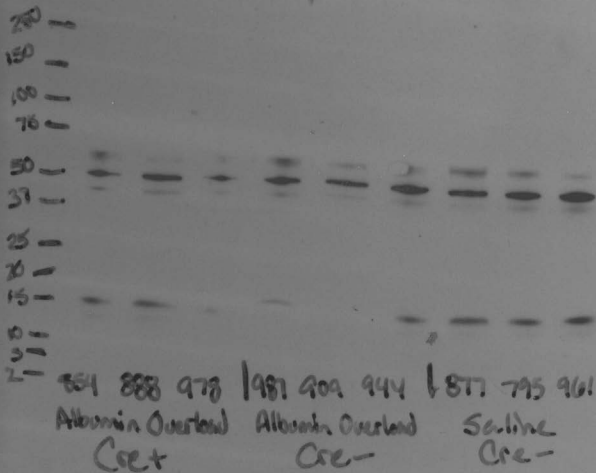 250
150
100
75
50
37
25
20
15
10
5
2
854 888 978 | 981 909 944 | 877 795 961
Albumin Overload Albumin Overload Saline
Cre+ Cre- Cre-